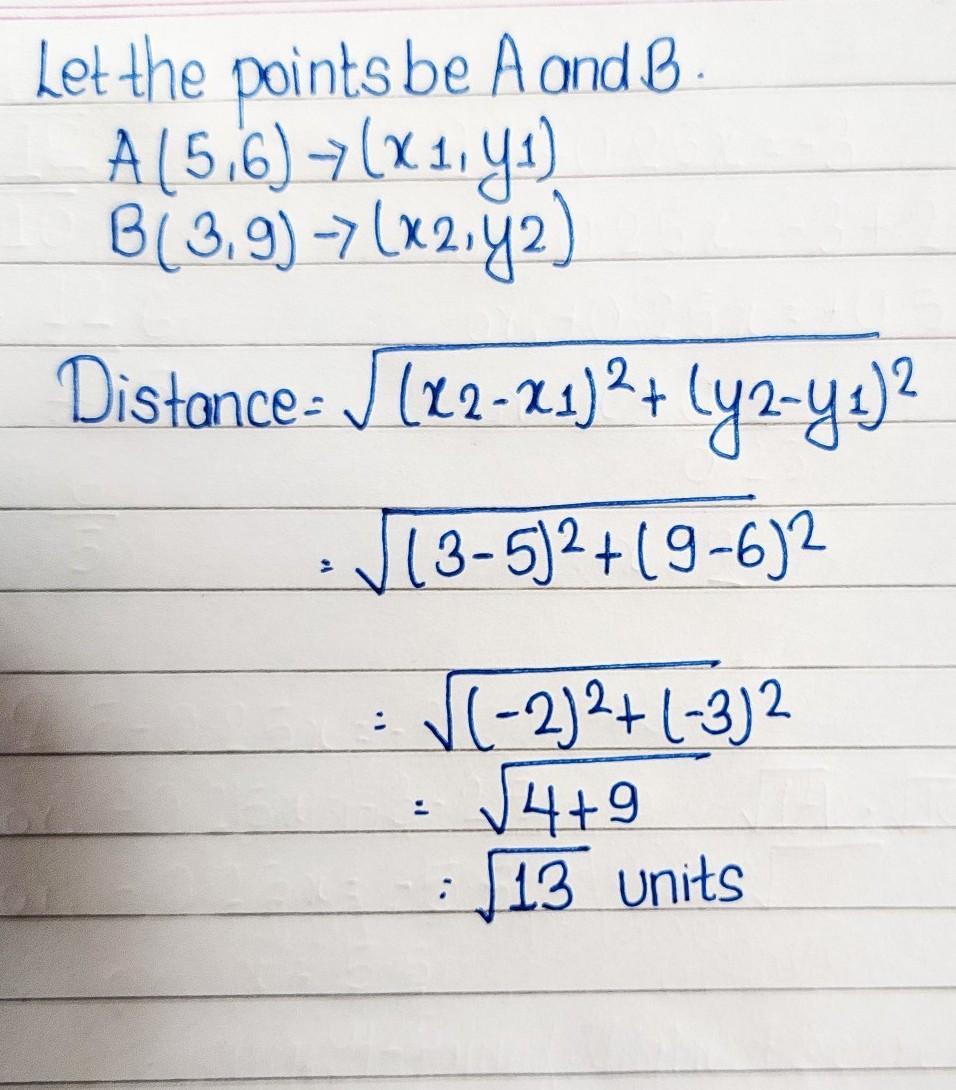 Let the points be A and B.
A(5,6)→(x1,y1)
B(3,9)→(x2,y2)
Distance=√(x2-x1)²+(y2-y1)²
=√(3-5)²+(9-6)²
=√(-2)²+(-3)²
=√4+9
:√13 units